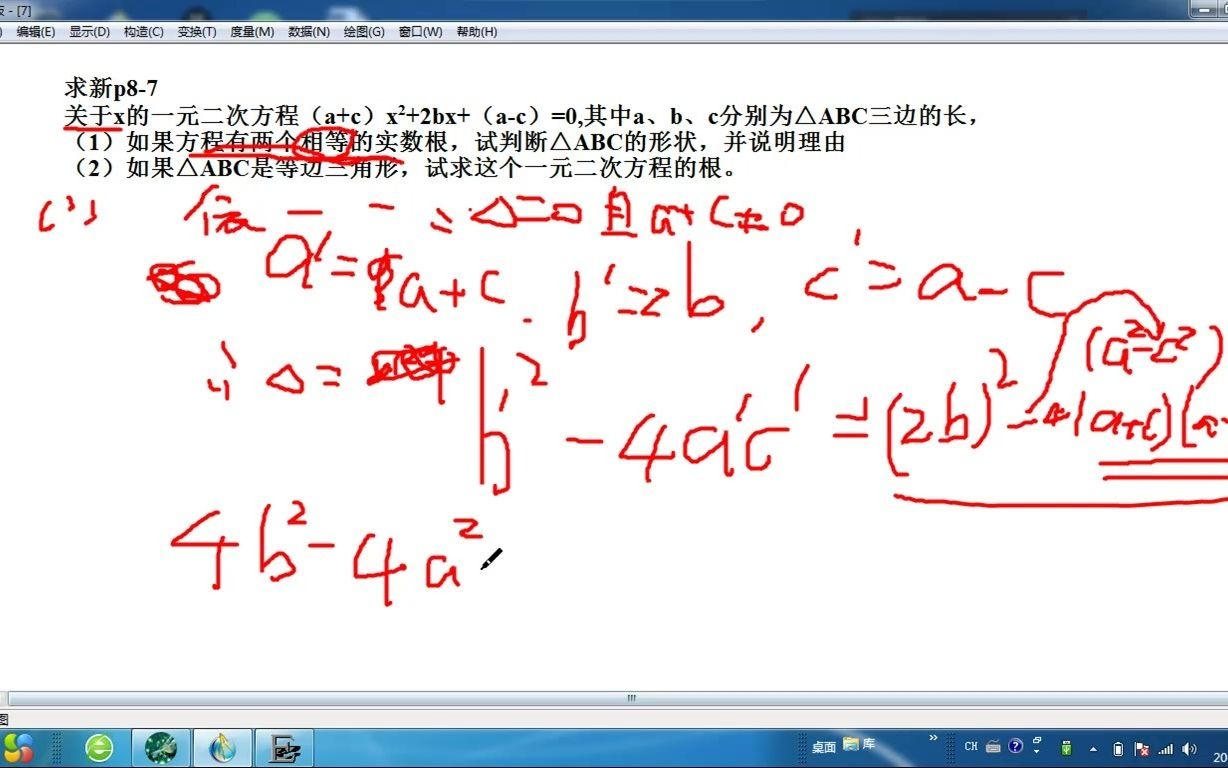 - [7]
编辑(E) 显示(D) 构造(C) 变换(T) 度量(M) 数据(N) 绘图(G) 窗口(W) 帮助(H)
求新p8-7
关于x的一元二次方程（a+c）x²+2bx+（a-c）=0,其中a、b、c分别为△ABC三边的长，
（1）如果方程有两个相等的实数根，试判断△ABC的形状，并说明理由
（2）如果△ABC是等边三角形，试求这个一元二次方程的根。
△=0 且 a+c≠0
a'= a+c . b'=2b , c'=a-c
(a²-c²)
∴ △= b'²-4a'c' =(2b)²-4(a+c)(a-
4b²-4a²
图
桌面 库 » CH
20